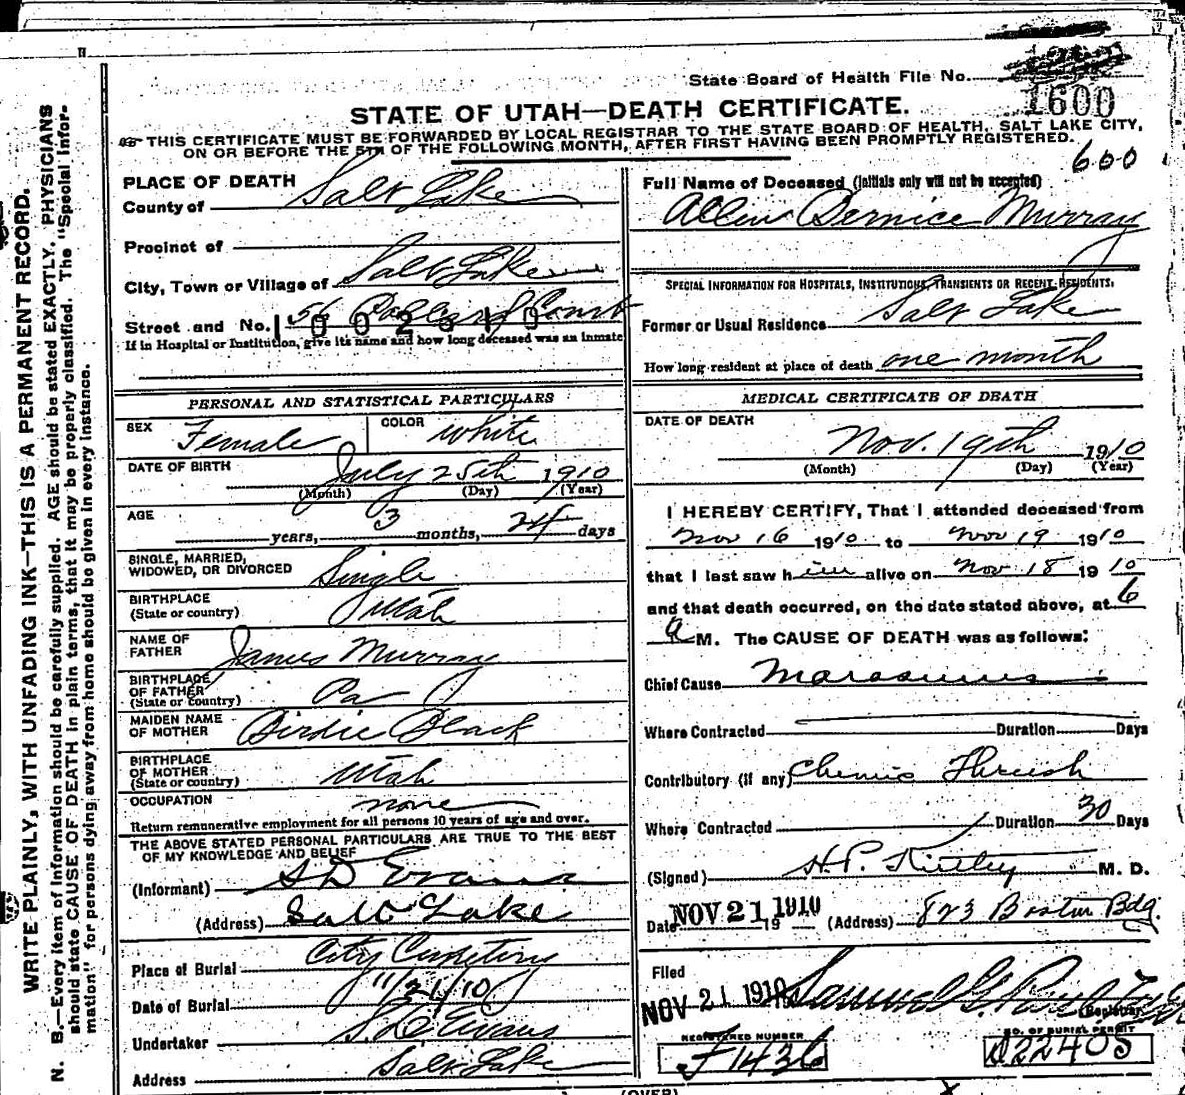 State Board of Health File No.
1600
STATE OF UTAH—DEATH CERTIFICATE.
THIS CERTIFICATE MUST BE FORWARDED BY LOCAL REGISTRAR TO THE STATE BOARD OF HEALTH, SALT LAKE CITY,
ON OR BEFORE THE 5TH OF THE FOLLOWING MONTH, AFTER FIRST HAVING BEEN PROMPTLY REGISTERED.
600
WRITE PLAINLY, WITH UNFADING INK—THIS IS A PERMANENT RECORD.
N. B.—Every item of information should be carefully supplied. AGE should be stated EXACTLY. PHYSICIANS
should state CAUSE OF DEATH in plain terms, that it may be properly classified. The "Special Infor-
mation" for persons dying away from home should be given in every instance.
PLACE OF DEATH
County of Salt Lake
Precinct of
City, Town or Village of Salt Lake
Street and No. 56 Court
If in Hospital or Institution, give its name and how long deceased was an inmate
PERSONAL AND STATISTICAL PARTICULARS
SEX Female COLOR White
DATE OF BIRTH July 25th 1910
(Month) (Day) (Year)
AGE years, 3 months, 24 days
SINGLE, MARRIED,
WIDOWED, OR DIVORCED Single
BIRTHPLACE
(State or country) Utah
NAME OF
FATHER James Murray
BIRTHPLACE
OF FATHER
(State or country) Pa
MAIDEN NAME
OF MOTHER Birdie Black
BIRTHPLACE
OF MOTHER
(State or country) Utah
OCCUPATION none
Return remunerative employment for all persons 10 years of age and over.
THE ABOVE STATED PERSONAL PARTICULARS ARE TRUE TO THE BEST
OF MY KNOWLEDGE AND BELIEF
(Informant) S D Evans
(Address) Salt Lake
Place of Burial City Cemetery
Date of Burial 11/21/10
Undertaker S. D. Evans
Address Salt Lake
Full Name of Deceased (initials only will not be accepted)
Allen Bernice Murray
SPECIAL INFORMATION FOR HOSPITALS, INSTITUTIONS, TRANSIENTS OR RECENT RESIDENTS.
Former or Usual Residence Salt Lake
How long resident at place of death one month
MEDICAL CERTIFICATE OF DEATH
DATE OF DEATH
Nov. 19th 1910
(Month) (Day) (Year)
I HEREBY CERTIFY, That I attended deceased from
Nov 16 1910 to Nov 19 1910
that I last saw him alive on Nov 18 1910
and that death occurred, on the date stated above, at 6
a M. The CAUSE OF DEATH was as follows:
Chief Cause Marasmus
Where Contracted Duration Days
Contributory (if any) Thrush
Where Contracted Duration 30 Days
(Signed) H. P. Kirtley M. D.
Date NOV 21 1910 19 (Address) 823 Boston Bdg.
Filed
NOV 21 1910 Samuel G. Paul
Registrar
REGISTERED NUMBER
F1436
NO. OF BURIAL PERMIT
A22405
(OVER)